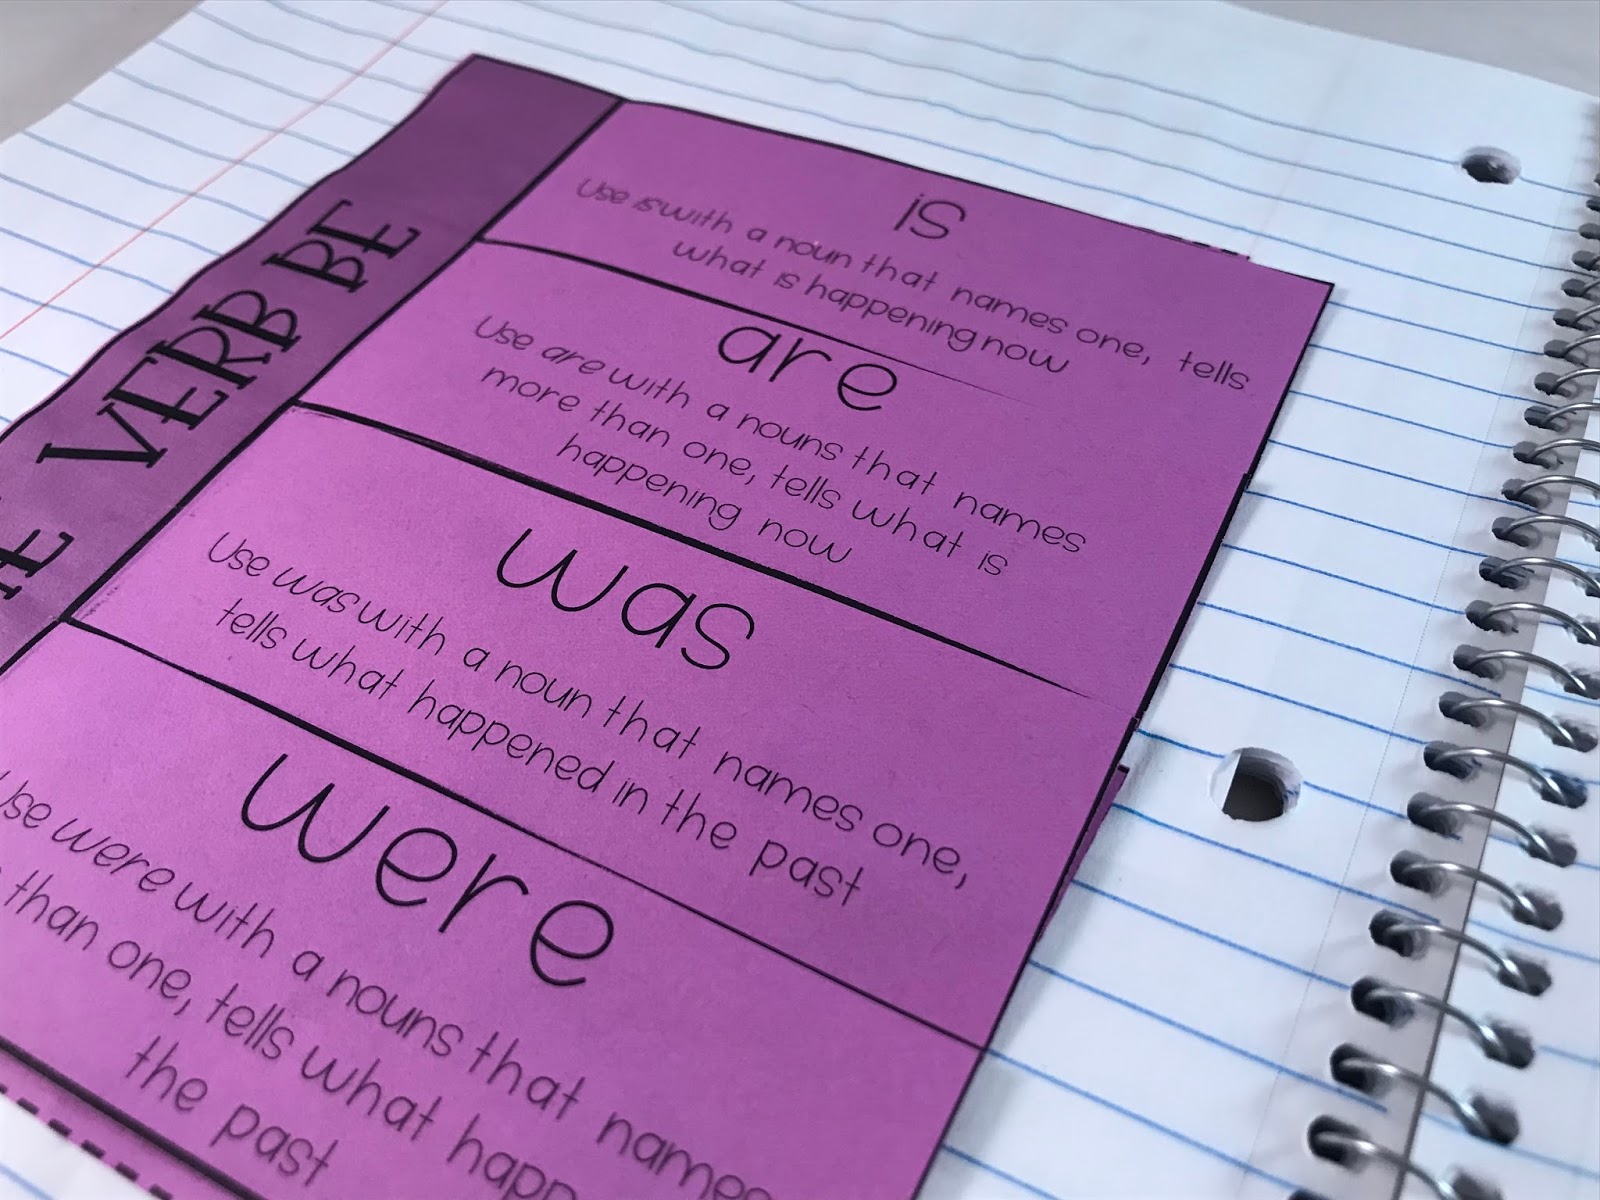 VERB BE
is
Use is with a noun that names one, tells
what is happening now
are
Use are with a nouns that names
more than one, tells what is
happening now
was
Use was with a noun that names one,
tells what happened in the past
were
Use were with a nouns that names
than one, tells what
the past